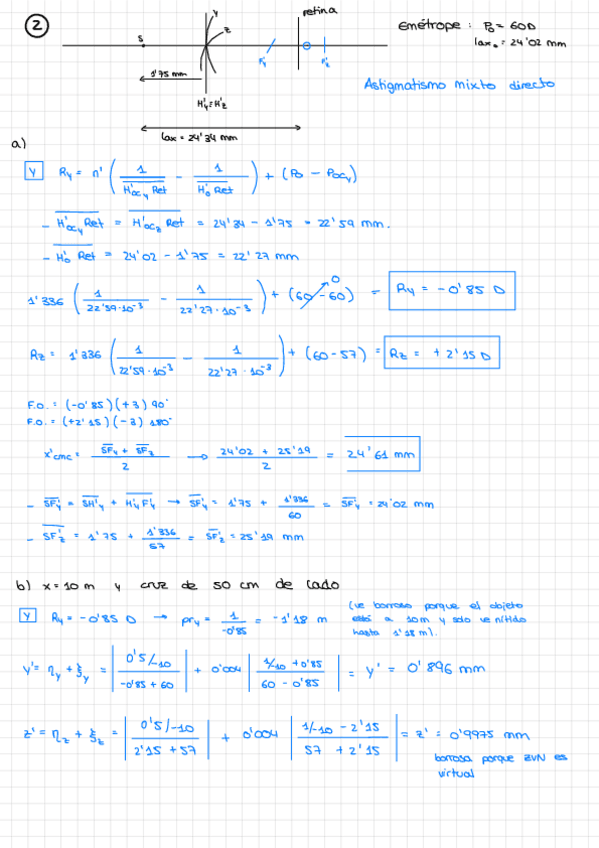 2
retina
emétrope: P₀ = 60 D
lax₀ = 24'02 mm
y
z
S
F'y
F'z
1'75 mm
H'y = H'z
Astigmatismo mixto directo
lax = 24'34 mm
a)
Y Ry = n' ( 1 / H'ocy Ret - 1 / H'o Ret ) + (Po - Pocy)
- H'ocy Ret = H'ocz Ret = 24'34 - 1'75 = 22'59 mm.
- H'o Ret = 24'02 - 1'75 = 22'27 mm
1'336 ( 1 / 22'59·10⁻³ - 1 / 22'27·10⁻³ ) + (60 - 60) 0 = Ry = -0'85 D
Rz = 1'336 ( 1 / 22'59·10⁻³ - 1 / 22'27·10⁻³ ) + (60 - 57) = Rz = +2'15 D
F.O. = (-0'85) (+3) 90°
F.O. = (+2'15) (-3) 180°
x'cmc = SF'y + SF'z / 2 → 24'02 + 25'19 / 2 = 24'61 mm
- SF'y = SH'y + H'yF'y → SF'y = 1'75 + 1'336 / 60 = SF'y = 24'02 mm
- SF'z = 1'75 + 1'336 / 57 = SF'z = 25'19 mm
b) x = 10 m y cruz de 50 cm de lado
Y Ry = -0'85 D → pry = 1 / -0'85 = -1'18 m
(ve borroso porque el objeto
está a 10 m y solo ve nítido
hasta 1'18 m).
y' = ηy + ξy = | 0'5/-10 / -0'85 + 60 | + 0'004 | 1/-10 + 0'85 / 60 - 0'85 | = y' = 0'896 mm
z' = ηz + ξz = | 0'5/-10 / 2'15 + 57 | + 0'004 | 1/-10 - 2'15 / 57 + 2'15 | = z' = 0'9975 mm
borrosa porque ZVN es
virtual